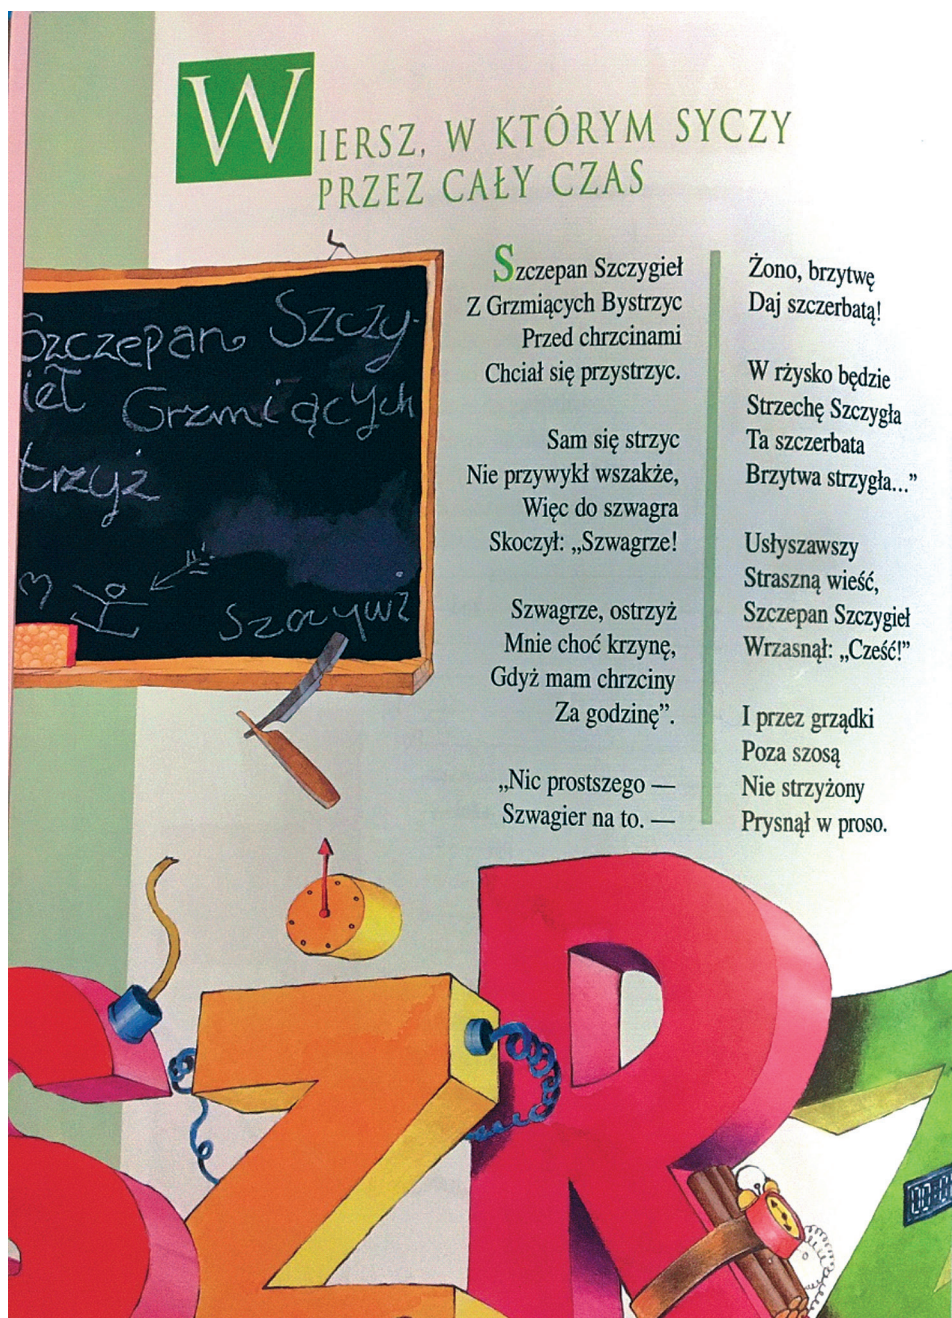 WIERSZ, W KTÓRYM SYCZY
PRZEZ CAŁY CZAS
Szczepan Szczy-
ieł Grzmiących
trzyż
Szczepan Szczygieł
Z Grzmiących Bystrzyc
Przed chrzcinami
Chciał się przystrzyc.
Sam się strzyc
Nie przywykł wszakże,
Więc do szwagra
Skoczył: „Szwagrze!
Szwagrze, ostrzyż
Mnie choć krzynę,
Gdyż mam chrzciny
Za godzinę”.
„Nic prostszego —
Szwagier na to. —
Żono, brzytwę
Daj szczerbatą!
W rżysko będzie
Strzechę Szczygła
Ta szczerbata
Brzytwa strzygła...”
Usłyszawszy
Straszną wieść,
Szczepan Szczygieł
Wrzasnął: „Cześć!”
I przez grządki
Poza szosą
Nie strzyżony
Prysnął w proso.
SŻRZ